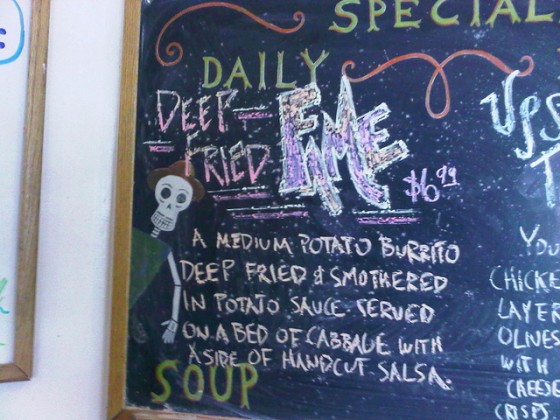 SPECIAL
DAILY
DEEP-
FRIED
FAME
$6.99
A MEDIUM POTATO BURRITO
DEEP FRIED & SMOTHERED
IN POTATO SAUCE SERVED
ON A BED OF CABBAGE WITH
A SIDE OF HANDCUT SALSA.
SOUP
UPS
T
YOU
CHICKE
LAYER
OLIVES
WITH
CHEESE
CRISP